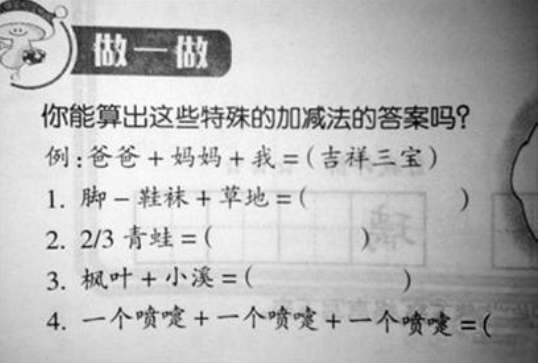 做一做
你能算出这些特殊的加减法的答案吗?
例:爸爸+妈妈+我=(吉祥三宝)
1. 脚-鞋袜+草地=( )
2. 2/3 青蛙=( )
3. 枫叶+小溪=( )
4. 一个喷嚏+一个喷嚏+一个喷嚏=(